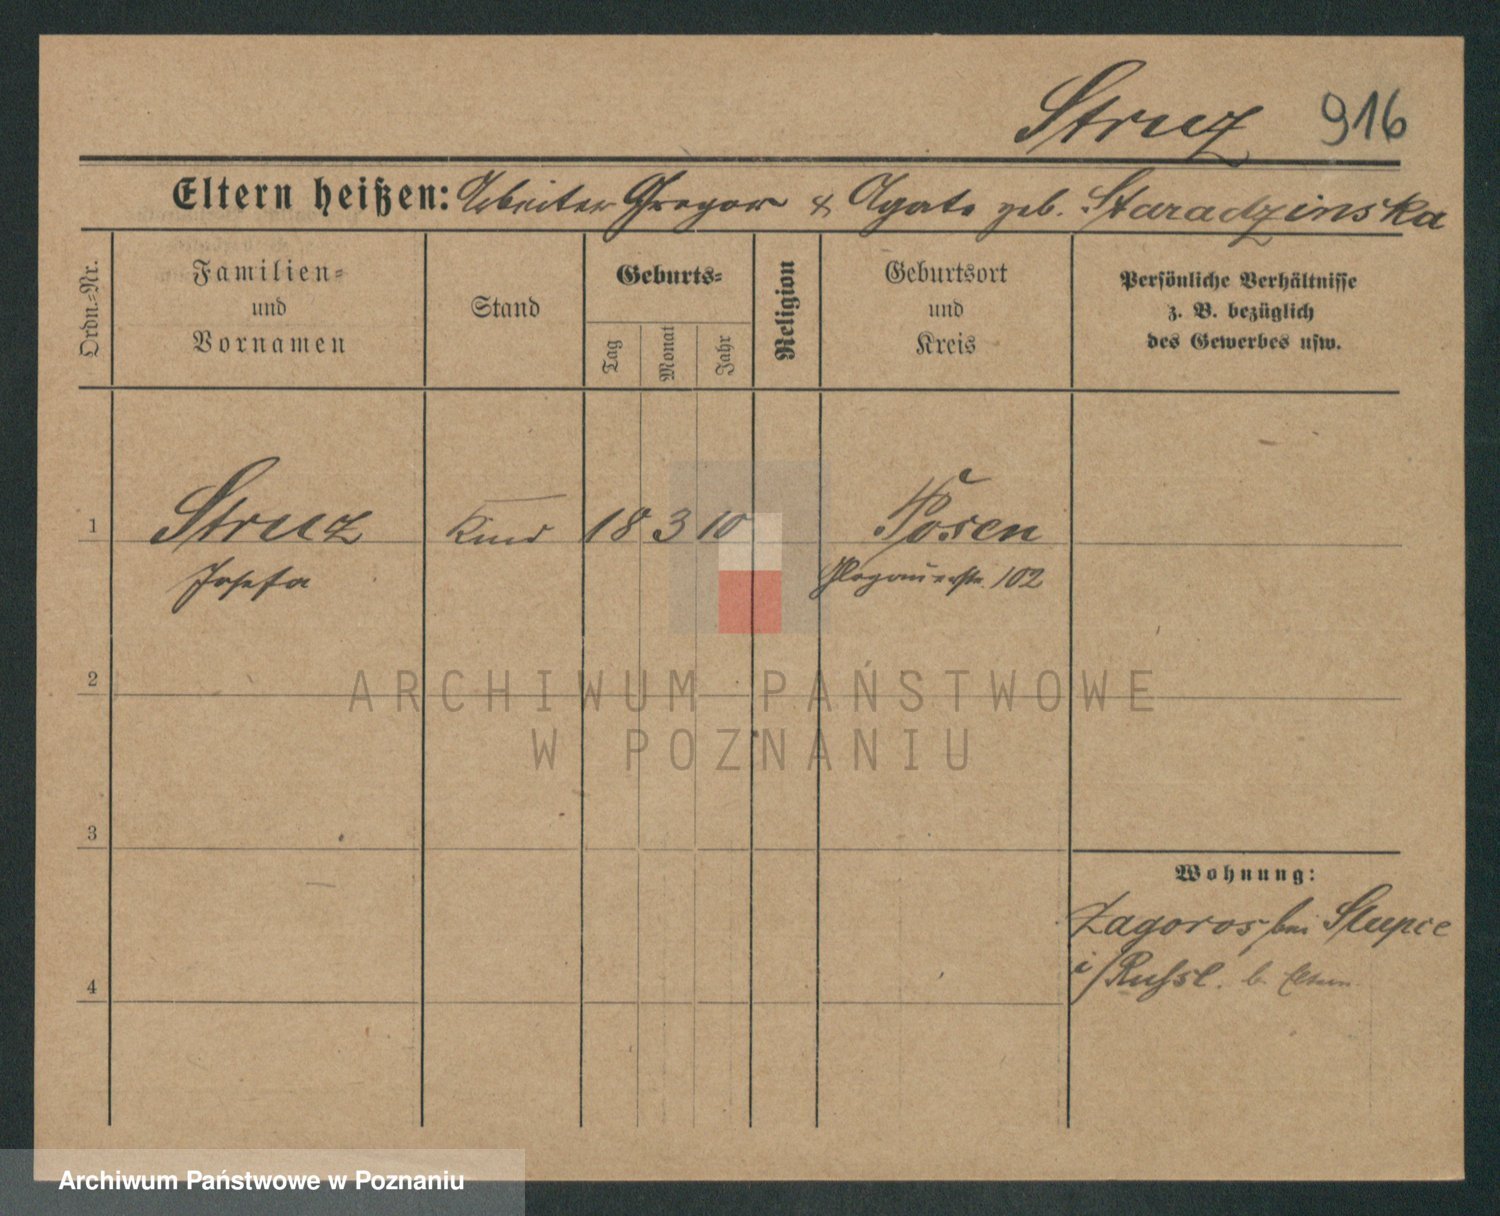 Struz 916
Eltern heißen: Arbeiter Gregor & Agate geb. Staradzinska
Ordn.=Nr.
Familien=
und
Vornamen
Stand
Geburts=
Tag
Monat
Jahr
Religion
Geburtsort
und
Kreis
Persönliche Verhältnisse
z. B. bezüglich
des Gewerbes usw.
1 Struz Kind 18 3 10 Posen
Josefa Glogauerstr. 102
2
ARCHIWUM PAŃSTWOWE
W POZNANIU
3
Wohnung:
Zagoros bei Slupce
4 i/Russl. b. Eltern
Archiwum Państwowe w Poznaniu